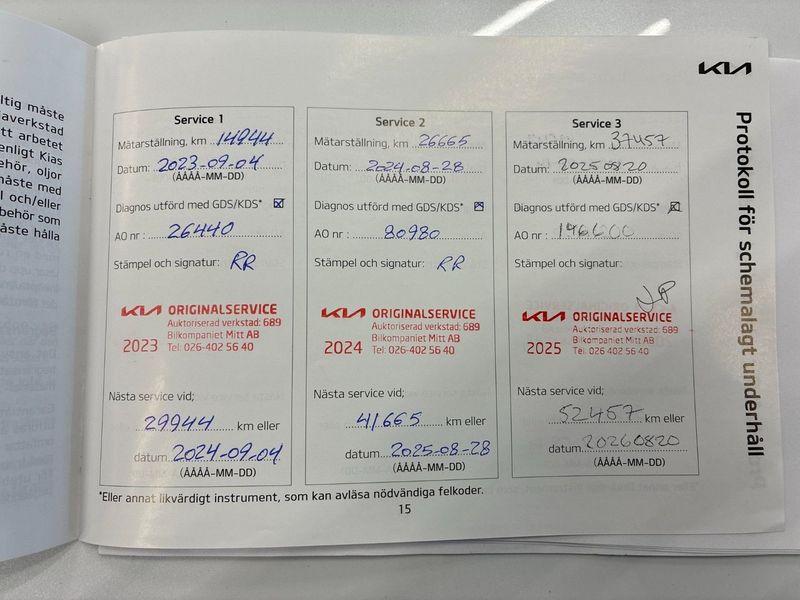 ltig måste
averkstad
tt arbetet
enligt Kias
ehör, oljor
måste med
l och/eller
behör som
åste hålla
KIA
Protokoll för schemalagt underhåll
Service 1
Mätarställning, km 14944
Datum: 2023-09-04
(ÅÅÅÅ-MM-DD)
Diagnos utförd med GDS/KDS*
AO nr: 26440
Stämpel och signatur: RR
KIA ORIGINALSERVICE
Auktoriserad verkstad: 689
Bilkompaniet Mitt AB
2023 Tel: 026-402 56 40
Nästa service vid;
29944 km eller
datum 2024-09-04
(ÅÅÅÅ-MM-DD)
Service 2
Mätarställning, km 26665
Datum: 2024-08-28
(ÅÅÅÅ-MM-DD)
Diagnos utförd med GDS/KDS*
AO nr: 80980
Stämpel och signatur: RR
KIA ORIGINALSERVICE
Auktoriserad verkstad: 689
Bilkompaniet Mitt AB
2024 Tel: 026-402 56 40
Nästa service vid;
41665 km eller
datum 2025-08-28
(ÅÅÅÅ-MM-DD)
Service 3
Mätarställning, km 37457
Datum: 20250820
(ÅÅÅÅ-MM-DD)
Diagnos utförd med GDS/KDS*
AO nr:
Stämpel och signatur:
KIA ORIGINALSERVICE
Auktoriserad verkstad: 689
Bilkompaniet Mitt AB
2025 Tel: 026-402 56 40
Nästa service vid;
52457 km eller
datum 20260820
(ÅÅÅÅ-MM-DD)
*Eller annat likvärdigt instrument, som kan avläsa nödvändiga felkoder.
15